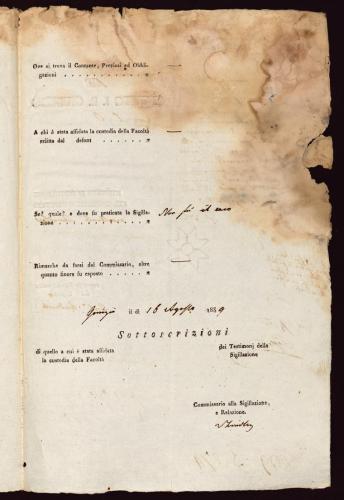 Ove si trova il Contante, Preziosi ed Obbli-
gazioni . . . . . . . . . . . . "
A chi è stata affidata la custodia della Facoltà
relitta del defont . . . . . . . "
Se? quale? e dove fu praticata la Sigilla-
zione . . . . . . . . . . . . . " Non fu il caso
Rimarche da farsi del Commissario, oltre
quanto finora fu esposto . . . . . . "
Gorizia il dì 16 Agosto 1839
Sottoscrizioni
di quello a cui è stata affidata
la custodia della Facoltà
dei Testimonj della
Sigillazione
Commissario alla Sigillazione,
e Relazione.